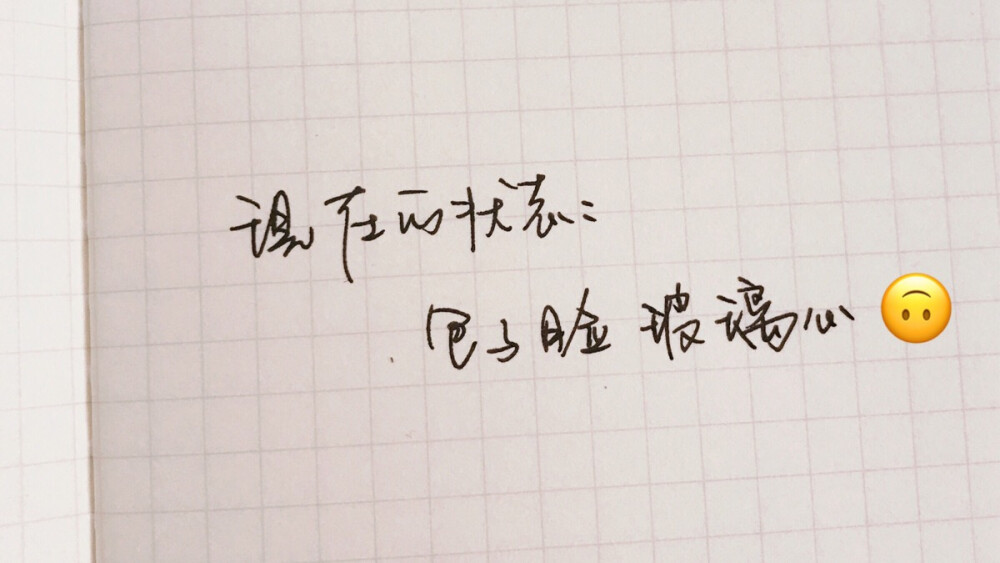 现在的状态：
包子脸 玻璃心 🙃